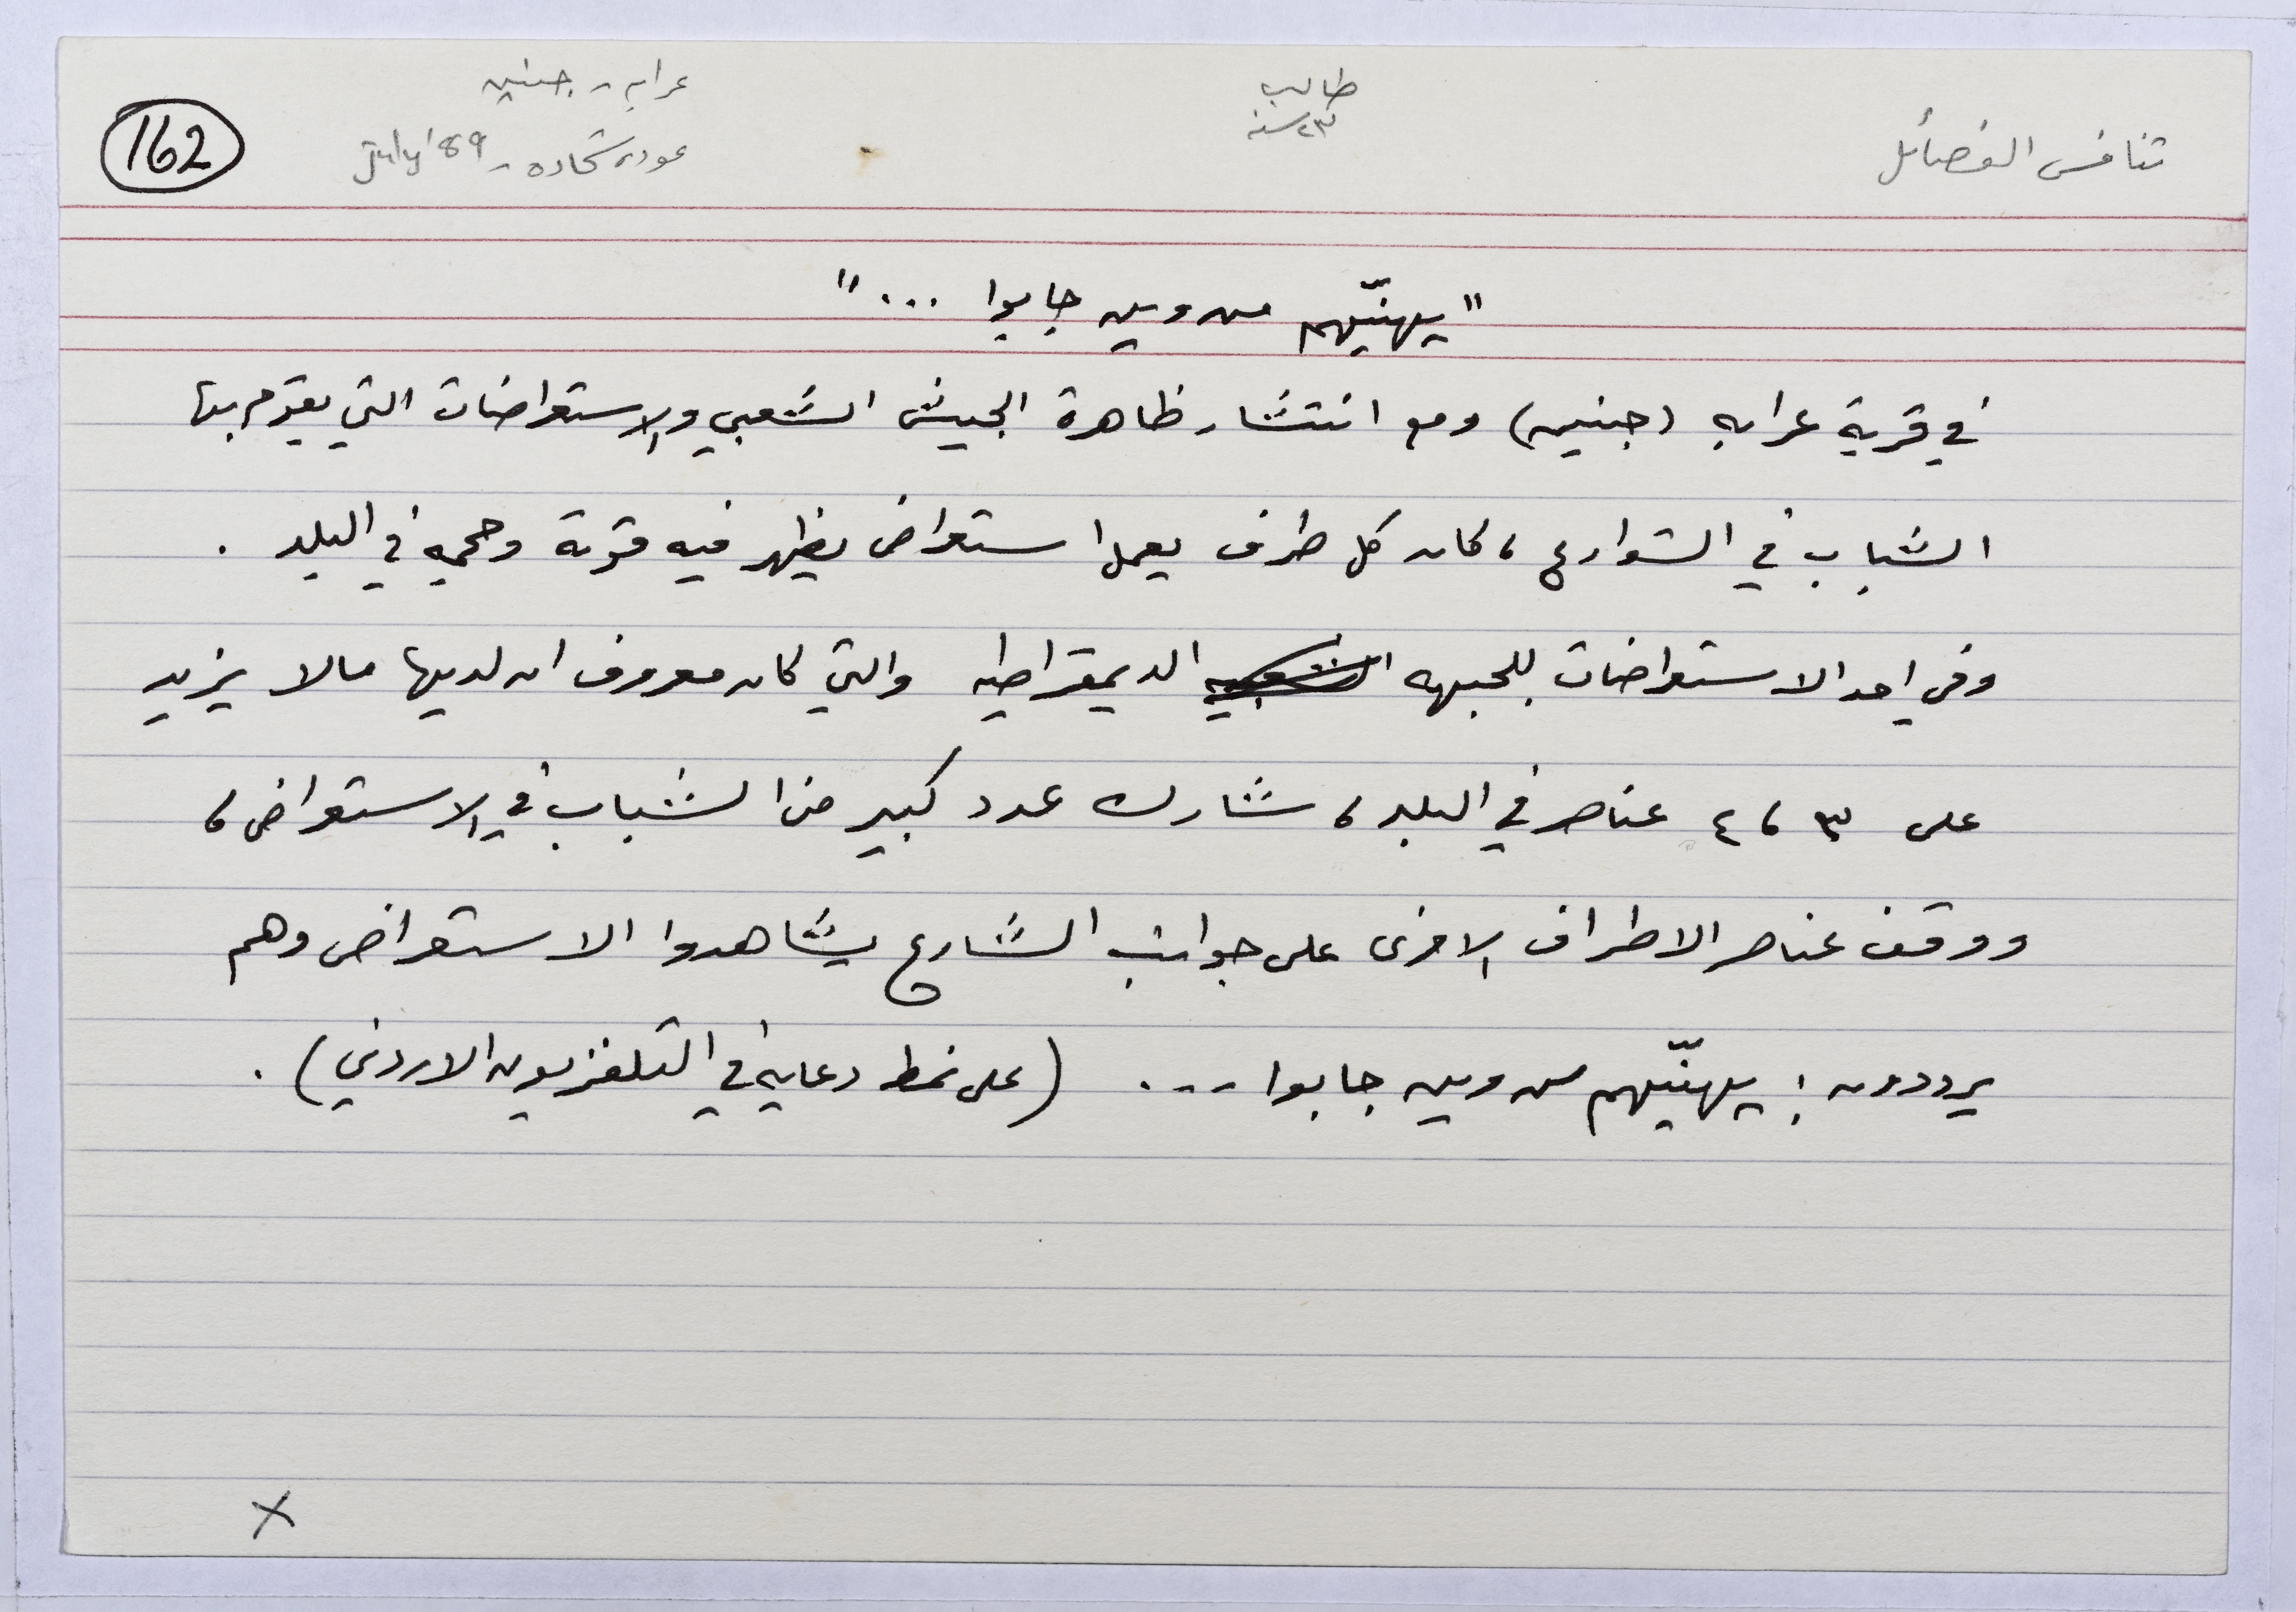 تنافس الفصائل
طالب
٢٣ سنه
عرابه - جنين
عوده شحاده - July '89
162
"يهنيّهم من وين جابوا ..."
في قرية عرابه (جنين) ومع انتشار ظاهرة الجيش الشعبي والاستعراضات التي يقوم بها
الشباب في الشوارع، كان كل طرف يعمل استعراض يظهر فيه قوته وحجمه في البلد .
وفي احد الاستعراضات للجبهه الشعبيه الديمقراطيه والتي كان معروف ان لديها مالا يزيد
على ٣، ٤ عناصر في البلد، شارك عدد كبير من الشباب في الاستعراض،
ووقف عناصر الاطراف الاخرى على جوانب الشارع يشاهدوا الاستعراض وهم
يرددون : يهنيّهم من وين جابوا ... (على نمط دعايه في التلفزيون الاردني) .
X